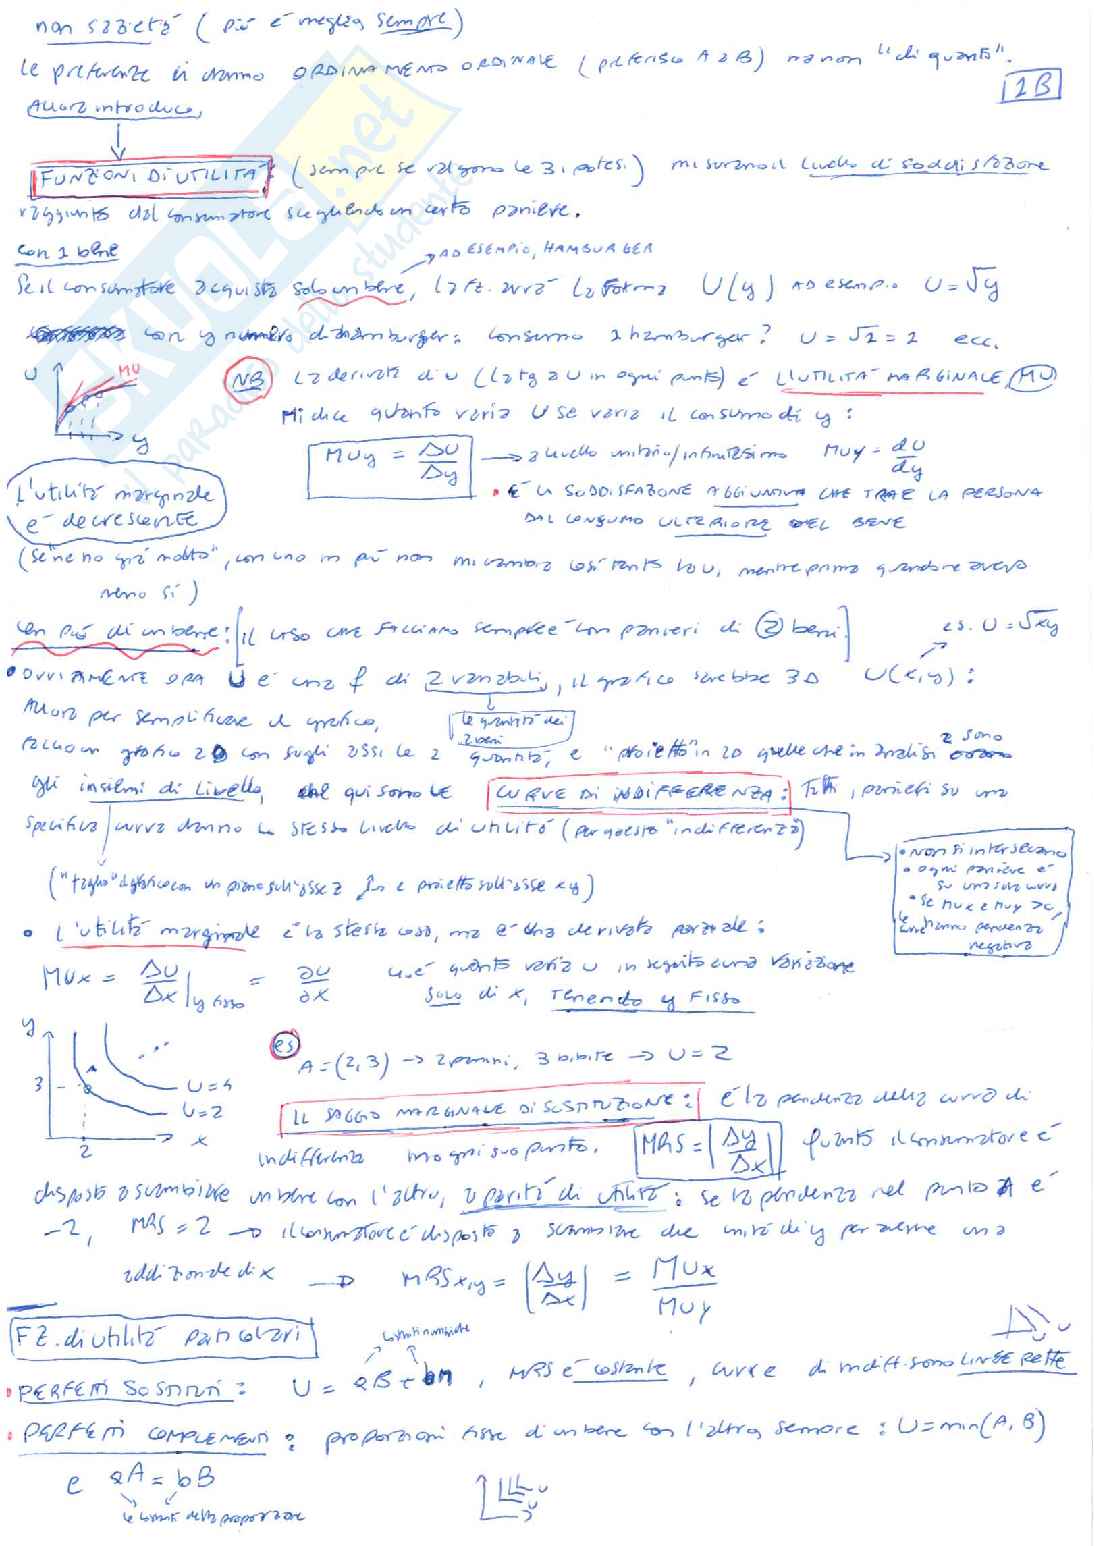 non sazietà (più è meglio, sempre)
le preferenze ci danno ORDINAMENTO ORDINALE (preferisco A a B) ma non "di quanto".
1B
Allora introduco,
FUNZIONI DI UTILITÀ: (sempre se valgono le 3 ipotesi) misurano il livello di soddisfazione
raggiunto dal consumatore scegliendo un certo paniere.
con 1 bene
AD ESEMPIO, HAMBURGER
Se il consumatore acquista solo un bene, la fz. avrà la forma U(y) AD esempio U=√y
con y numero di hamburger: consumo 1 hamburger? U=√1=1 ecc.
U MU y
NB La derivata di U (la tg a U in ogni punto) è L'UTILITÀ MARGINALE, MU
Mi dice quanto varia U se varia il consumo di y:
MUy = ΔU/Δy → a livello unitario/infinitesimo MUy = dU/dy
L'utilità marginale è decrescente
• È LA SODDISFAZIONE AGGIUNTIVA CHE TRAE LA PERSONA
DAL CONSUMO ULTERIORE DEL BENE
(se "ne ho già molto", con uno in più non mi cambia così tanto la U, mentre prima quando ne avevo
meno sì)
con più di un bene: [il caso che facciamo sempre è con panieri di 2 beni]
es. U=√xy
• OVVIAMENTE ORA U è una f di 2 variabili, il grafico sarebbe 3D U(x,y):
le quantità dei 2 beni
Allora per semplificare il grafico,
faccio un grafico 2D con sugli assi le 2 quantità, e "proietto" in 2D quelle che in analisi 2 sono
gli insiemi di livello, qui sono le CURVE DI INDIFFERENZA: Tutti i panieri su una
specifica curva danno lo stesso livello di utilità (per questo "indifferenza")
• Non si intersecano
• ogni paniere è
su una sola curva
• Se MUx e MUy >0,
le curve hanno pendenza
negativa
("taglio" il grafico con un piano sull'asse z e proietto sull'asse xy)
• L'utilità marginale è la stessa cosa, ma è una derivata parziale:
MUx = ΔU/Δx | y fisso = ∂U/∂x cioè quanto varia U in seguito a una variazione
SOLO di x, TENENDO y FISSO
y 3 U=4 U=2 2 x
es A=(2,3) → 2 panini, 3 bibite → U=2
IL SAGGIO MARGINALE DI SOSTITUZIONE: È la pendenza della curva di
indifferenza in ogni suo punto. MRS = |Δy/Δx| Quanto il consumatore è
disposto a scambiare un bene con l'altro, a parità di utilità: se la pendenza nel punto A è
-2, MRS=2 → il consumatore è disposto a scambiare due unità di y per averne una
addizionale di x → MRSx,y = |Δy/Δx| = MUx/MUy
FZ. di utilità particolari
• PERFETTI SOSTITUTI: U = aB + bM, MRS è costante, curve di indiff. sono LINEE RETTE
U
• PERFETTI COMPLEMENTI: proporzioni fisse di un bene con l'altro, sempre: U=min(A,B)
e aA = bB
U
U
le costanti della proporzione